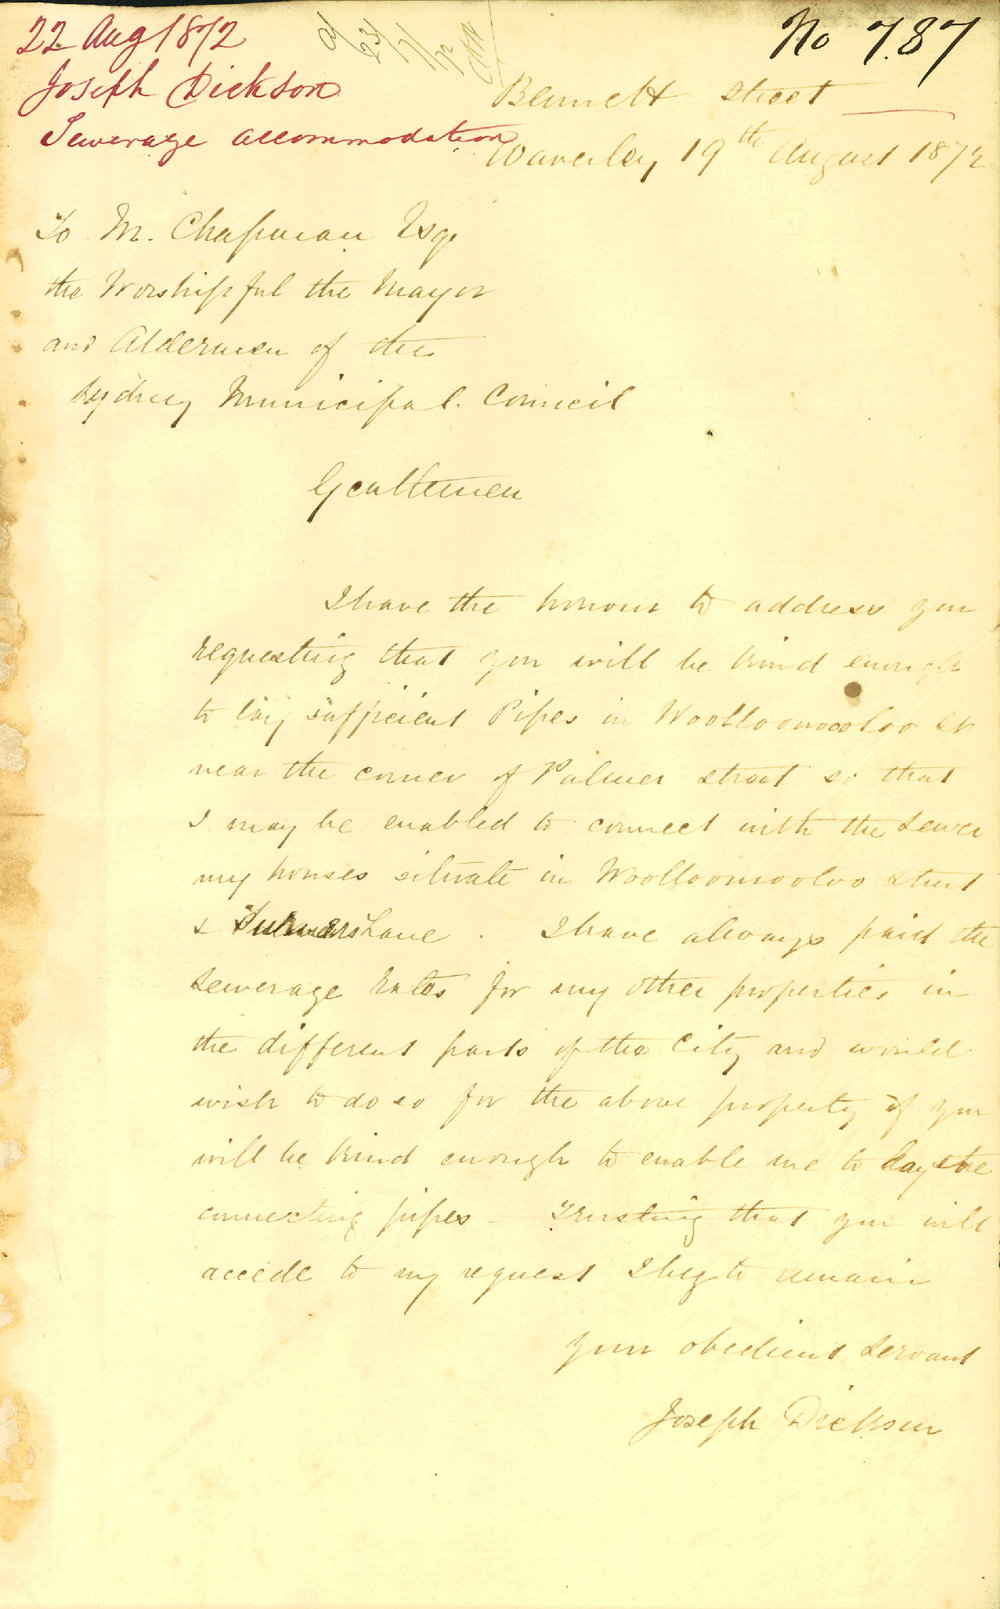 22 Aug 1872
Joseph Dickson
Sewerage accommodation
23/
No 787
Bennett Street
Waverley 19th August 1872
To M. Chapman Esqr
the Worshipful the Mayor
and Aldermen of the
Sydney Municipal Council
Gentlemen
I have the honour to address you
requesting that you will be kind enough
to lay sufficient Pipes in Woolloomooloo St
near the corner of Palmer street so that
I may be enabled to connect with the sewer
my houses situate in Woolloomooloo street
& Lane . I have always paid the
sewerage rates for my other properties in
the different parts of the City and would
wish to do so for the above property if you
will be kind enough to enable me to lay the
connecting pipes - Trusting that you will
accede to my request I beg to remain
your obedient servant
Joseph Dickson